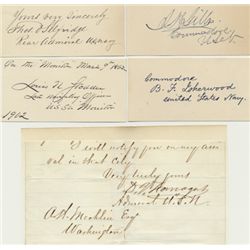 Yours very Sincerely
Thos O Selfridge
Rear Admiral U.S. Navy
Commodore
U.S.N.
On the Monitor March 9th 1862
Louis N. Stodder
U.S.S. Monitor
1862
Commodore
B. F. Isherwood
United States Navy.
I will notify you on my arri
val in that City
Very truly yours
D. G. Farragut
Admiral U.S.N.
Esq
Washington